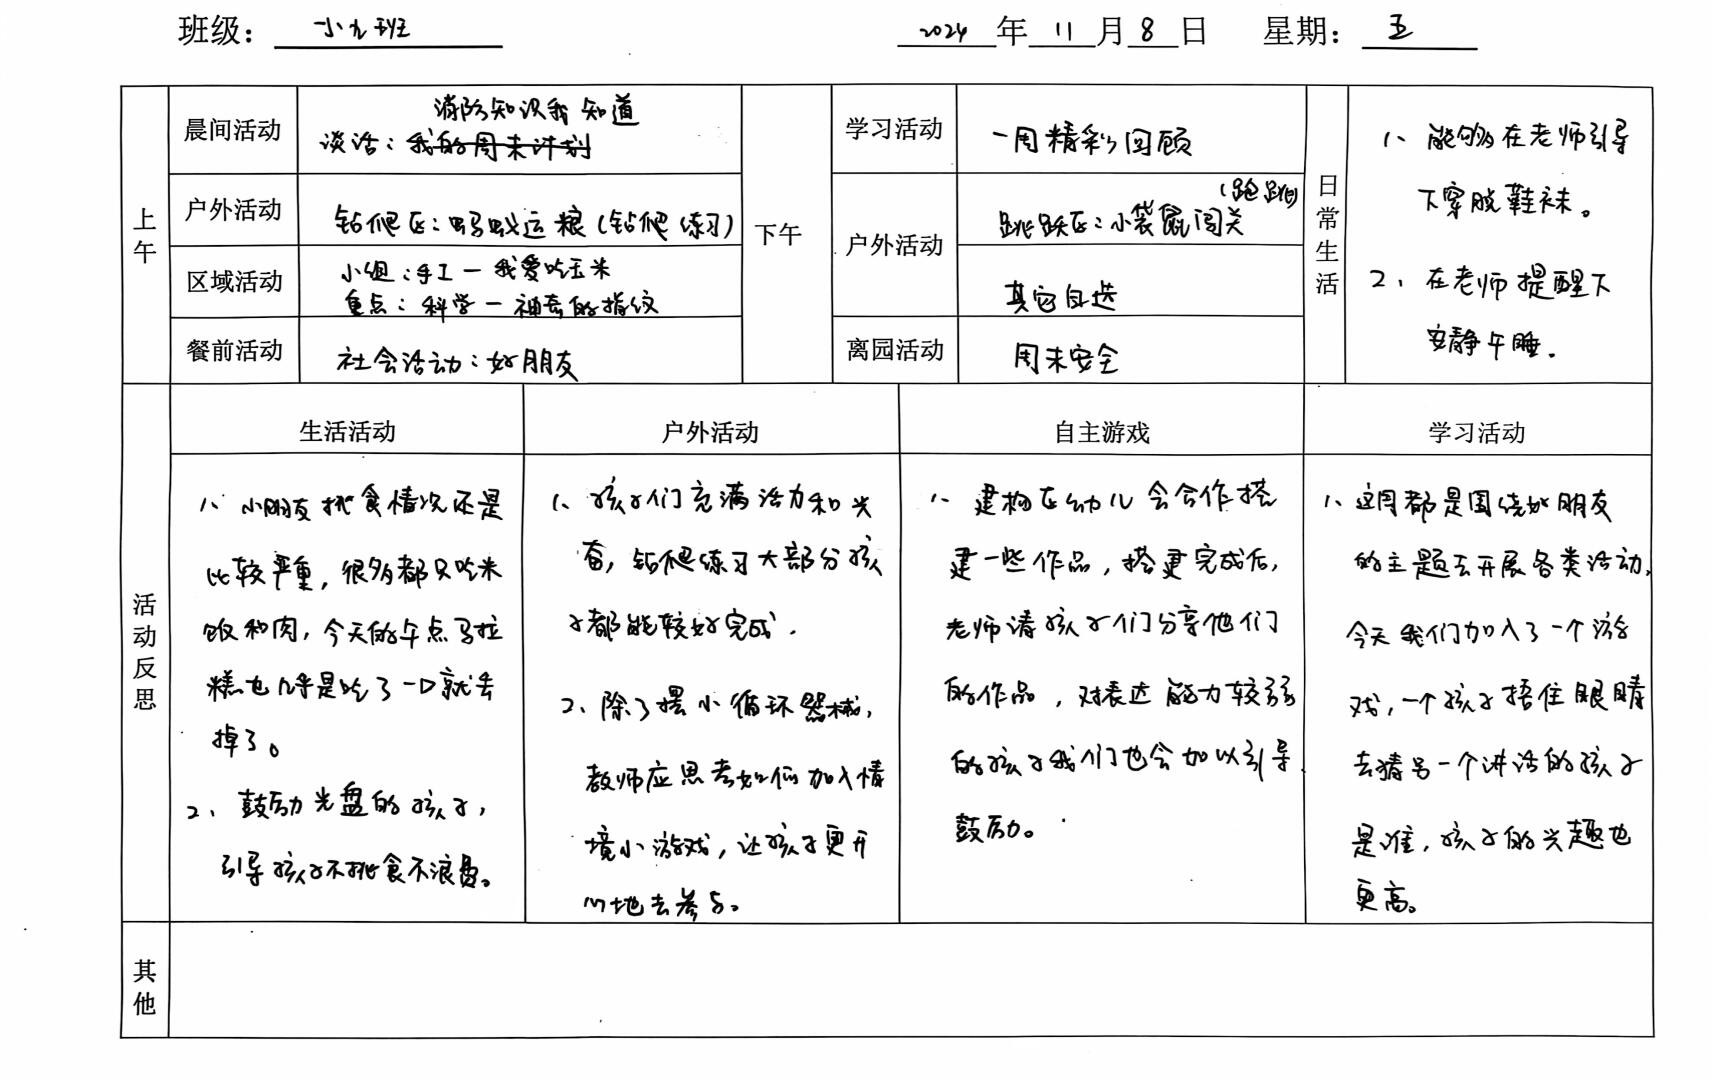 班级：小九班 2024年11月8日 星期：五
上午
晨间活动
消防知识我知道
谈话：我的周末计划
户外活动
钻爬区：蚂蚁运粮（钻爬练习）
区域活动
小组：手工－我爱吃玉米
重点：科学－神奇的指纹
餐前活动
社会活动：好朋友
下午
学习活动
一周精彩回顾
户外活动
（跑跳）
跳跃区：小袋鼠闯关
其它自选
离园活动
周末安全
日常生活
1、能够在老师引导
下穿脱鞋袜。
2、在老师提醒下
安静午睡.
活动反思
生活活动
1、小朋友挑食情况还是
比较严重，很多都只吃米
饭和肉，今天的午点马拉
糕也几乎是吃了一口就丢
掉了。
2、鼓励光盘的孩子，
引导孩子不挑食不浪费。
户外活动
1、孩子们充满活力和兴
奋，钻爬练习大部分孩
子都能较好完成.
2、除了摆小循环器械，
教师应思考如何加入情
境小游戏，让孩子更开
心地去参与。
自主游戏
1、建构区幼儿会合作搭
建一些作品，搭建完成后，
老师请孩子们分享他们
的作品，对表达能力较弱
的孩子我们也会加以引导
鼓励。
学习活动
1、这周都是围绕好朋友
的主题去开展各类活动，
今天我们加入了一个游
戏，一个孩子捂住眼睛
去猜另一个讲话的孩子
是谁，孩子的兴趣也
更高。
其他